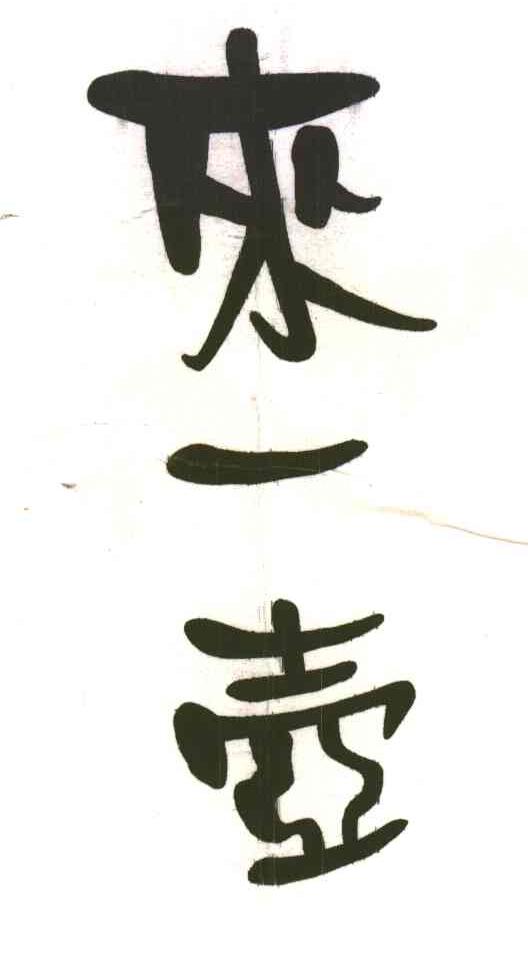 來一壺